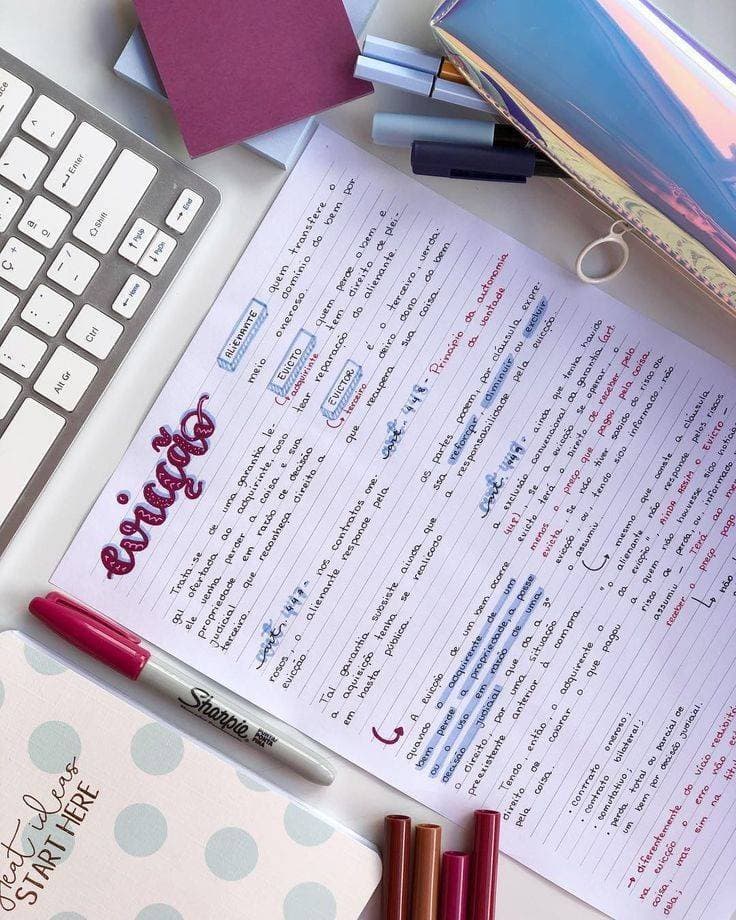 evicção
Trata-se de uma garantia le-
gal ofertada ao adquirinte, caso
ele venha perder a coisa e sua
propriedade em razão de decisão
judicial que reconheça direito a
terceiro.
art. 447- nos contratos one-
rosos, o alienante responde pela
evicção
Tal garantia subsiste ainda que
a aquisição tenha se realizado
em hasta pública.
A evicção de um bem ocorre
quando o adquirente de um
bem perde a propriedade, a posse
ou o uso em razão de uma
decisão judicial que da a 3º
o direito, por uma situação
preexistente anterior à compra.
Tendo, então, o adquirente o
direito de cobrar o que pagou
pela coisa.
• contrato oneroso;
• contrato bilateral;
• comutativo;
• perda total ou parcial de
um bem por decisão judicial.
→ diferentemente do vício redibit
na evicção o erro não es
coisa, mas sim na titul
dela;
ALIENANTE quem transfere o
domínio do bem por
meio oneroso.
EVICTO quem perde o bem e
adquirinte
tem direito de plei-
tear reparação do alienante.
EVICTOR é o terceiro, verda-
terceiro
deiro dono do bem
que recupera sua coisa.
art. 448- Princípio da autonomia
da vontade
as partes podem, por cláusula expre-
ssa reforçar, diminuir ou excluir
a responsabilidade pela evicção.
art. 449- ainda que tenha havido
a exclusão convencional da garantia (art.
448) se a evicção se operar, o
evicto terá o Direito de receber pelo
menos o preço que pagou pela coisa
evicta se não tiver sabido do risco da
evicção ou tendo sido informado, não
o assumiu
mesmo que conste a cláusula
"o alienante não responde pelos riscos
da evicção" AINDA ASSIM O EVICTO -
a quem não houvesse sido notici
risco de perda, ou informado
assumiu - Terá ao me
receber o preço pago
não
great ideas
START HERE
Sharpie
PONTA
FINA
Enter
Shift
Ctrl
Alt Gr
Home
End
PgUp
PgDn
ç